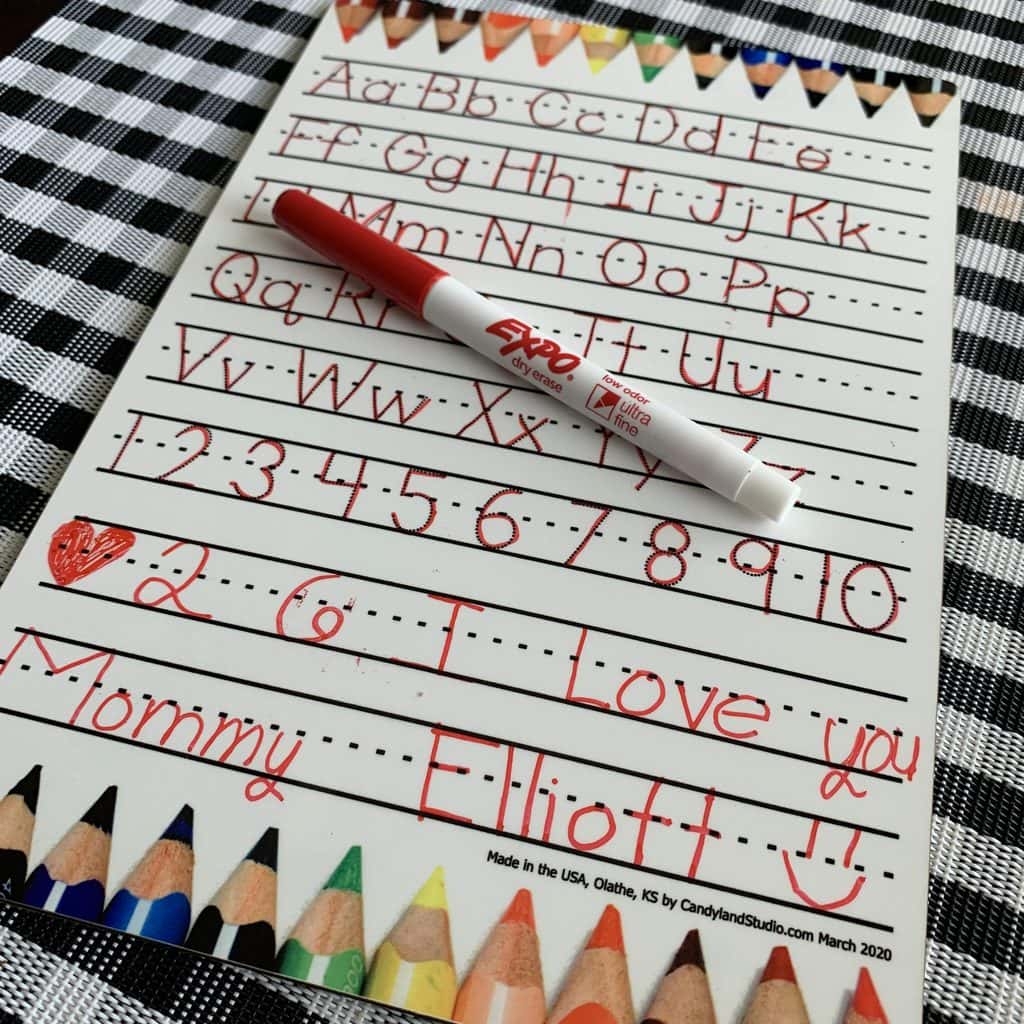 Aa Bb Cc Dd Ee
Ff Gg Hh Ii Jj Kk
Mm Nn Oo Pp
Qq Tt Uu
Vv Ww Xx Yy Zz
1 2 3 4 5 6 7 8 9 10
EXPO®
dry erase
low odor
ultra
fine
❤ 2 6 I Love you
Mommy Elliott
Made in the USA, Olathe, KS by CandylandStudio.com March 2020